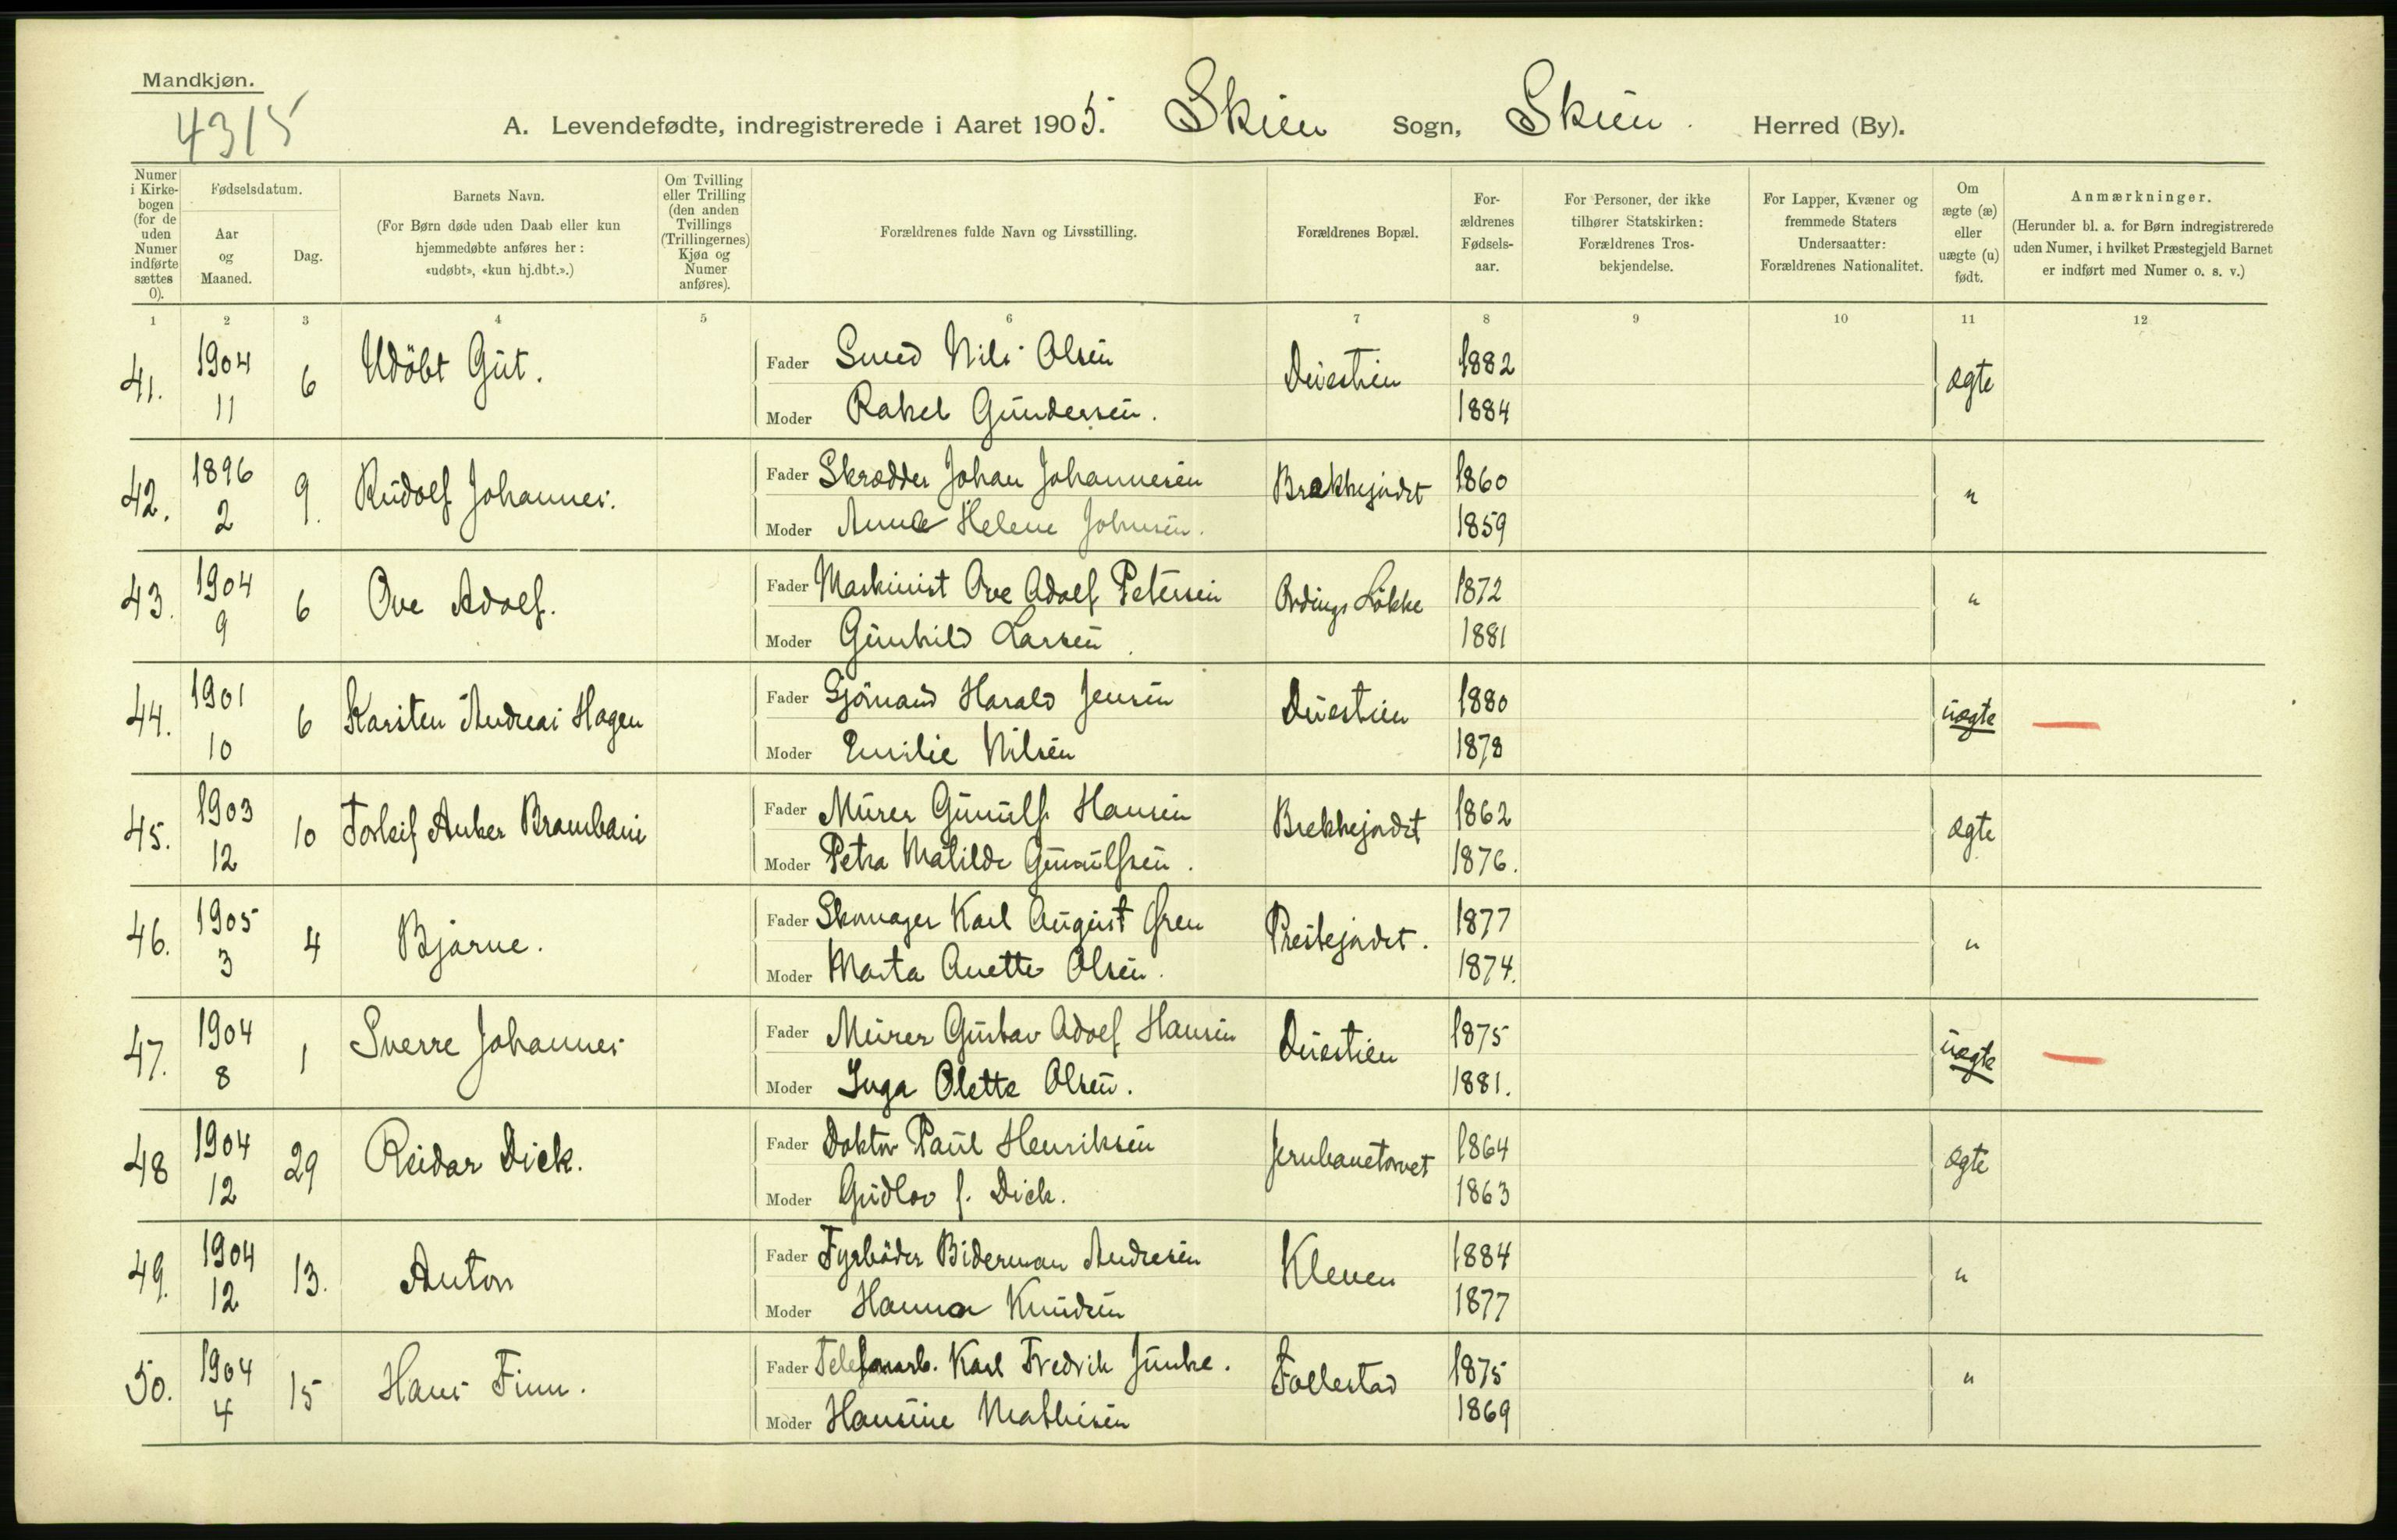 Mandkjøn.
4315
A. Levendefødte, indregistrerede i Aaret 1905. Skien Sogn, Skien. Herred (By).
Numer i Kirkebogen (for de uden Numer indførte sættes 0).
Fødselsdatum.
Aar og Maaned.
Dag.
Barnets Navn.
(For Børn døde uden Daab eller kun hjemmedøbte anføres her: «udøbt», «kun hj.dbt.».)
Om Tvilling eller Trilling (den anden Tvillings (Trillingernes) Kjøn og Numer anføres).
Forældrenes fulde Navn og Livsstilling.
Forældrenes Bopæl.
Forældrenes Fødselsaar.
For Personer, der ikke tilhører Statskirken: Forældrenes Trosbekjendelse.
For Lapper, Kvæner og fremmede Staters Undersaatter: Forældrenes Nationalitet.
Om ægte (æ) eller uægte (u) født.
Anmærkninger.
(Herunder bl. a. for Børn indregistrerede uden Numer, i hvilket Præstegjeld Barnet er indført med Numer o. s. v.)
1 2 3 4 5 6 7 8 9 10 11 12
41. 1904 11 6 Udöbt Gut. Fader Smed Nils Olsen Duestien 1882 ægte
Moder Rakel Gundersen. 1884
42. 1896 2 9. Rudolf Johannes. Fader Skrædder Johan Johannesen Brekkejordet 1860 "
Moder Anna Helene Johnsen. 1859
43. 1904 9 6 Ove Adolf. Fader Maskinist Ove Adolf Petersen Ordings Løkke 1872 "
Moder Gunhild Larsen. 1881
44. 1901 10 6 Karsten Andreas Hagen Fader Sjömand Harald Jensen Duestien 1880 uægte
Moder Emilie Nilsen 1878
45. 1903 12 10 Torleif Anker Brambani Fader Murer Gunulf Hansen Brekkejordet 1862 ægte
Moder Petra Matilde Gunulfsen. 1876.
46. 1905 3 4 Bjarne. Fader Skomager Karl August Gren Prestejordet. 1877 "
Moder Marta Anette Olsen. 1874.
47. 1904 8 1 Sverre Johannes Fader Murer Gustav Adolf Hansen Duestien 1875 uægte
Moder Inga Olette Olsen. 1881.
48 1904 12 29 Reidar Dick. Fader Doktor Paul Henriksen Jernbanetorvet 1864 ægte
Moder Gudlov f. Dick. 1863
49. 1904 12 13. Anton Fader Fyrböder Biderman Andresen Kleven 1884 "
Moder Hanna Knudsen 1877
50. 1904 4 15 Hans Finn. Fader Telefonarb. Karl Fredrik Junke. Follestad 1875 "
Moder Hansine Mathisen 1869